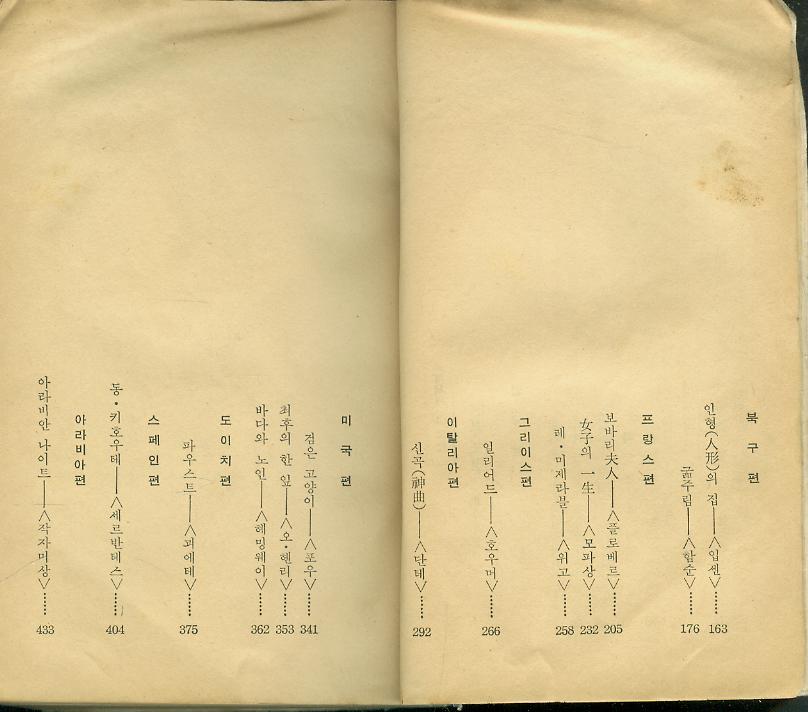 북구편
인형(人形)의 집──<입센>…… 163
굶주림──<함순>…… 176
프랑스편
보바리夫人──<플로베르>…… 205
女子의 一生──<모파상>…… 232
레·미제라블──<위고>…… 258
그리이스편
일리어드──<호우머>…… 266
이탈리아편
신곡(神曲)──<단테>…… 292
미국편
검은 고양이──<포우>…… 341
최후의 한 잎──<오·헨리>…… 353
바다와 노인──<헤밍웨이>…… 362
도이치편
파우스트──<괴에테>…… 375
스페인편
동·키호우테──<세르반테스>…… 404
아라비아편
아라비안 나이트──<작자미상>…… 433